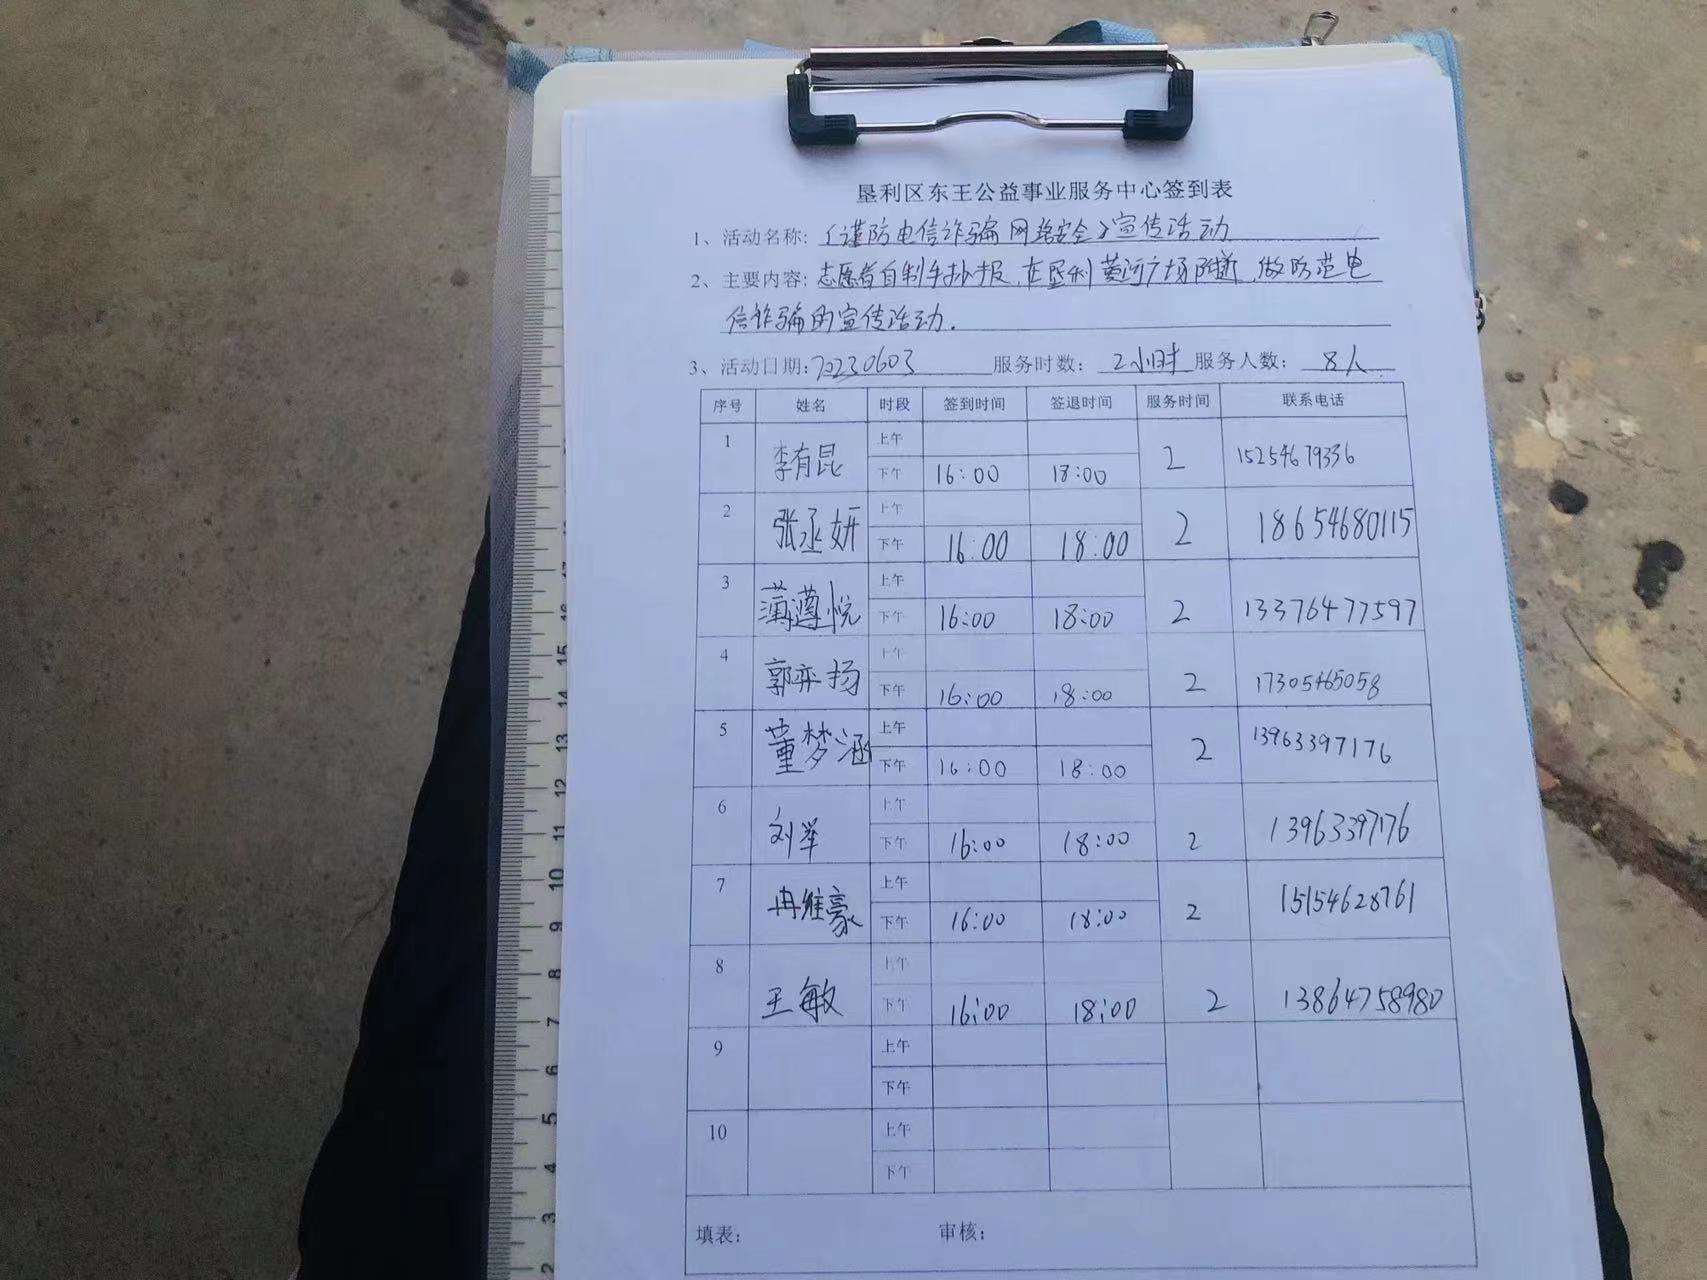 垦利区东王公益事业服务中心签到表
1、活动名称:《谨防电信诈骗 网络安全》宣传活动
2、主要内容:志愿者自制手抄报,在垦利黄河广场附近,做防范电
信诈骗的宣传活动.
3、活动日期:20230603 服务时数: 2小时 服务人数: 8人
序号 姓名 时段 签到时间 签退时间 服务时间 联系电话
1 李有昆 上午
下午 16:00 18:00 2 15254679336
2 张丞妍 上午
下午 16:00 18:00 2 18654680115
3 蒲遵悦 上午
下午 16:00 18:00 2 13376477597
4 郭弈扬 上午
下午 16:00 18:00 2 17305465058
5 董梦涵 上午
下午 16:00 18:00 2 13963397176
6 刘举 上午
下午 16:00 18:00 2 13963397176
7 冉维豪 上午
下午 16:00 18:00 2 15154628761
8 王敏 上午
下午 16:00 18:00 2 13864758980
9 上午
下午
10 上午
下午
填表: 审核:
17
16
15
14
13
12
11
10
9
8
7
6
5
4
3
2